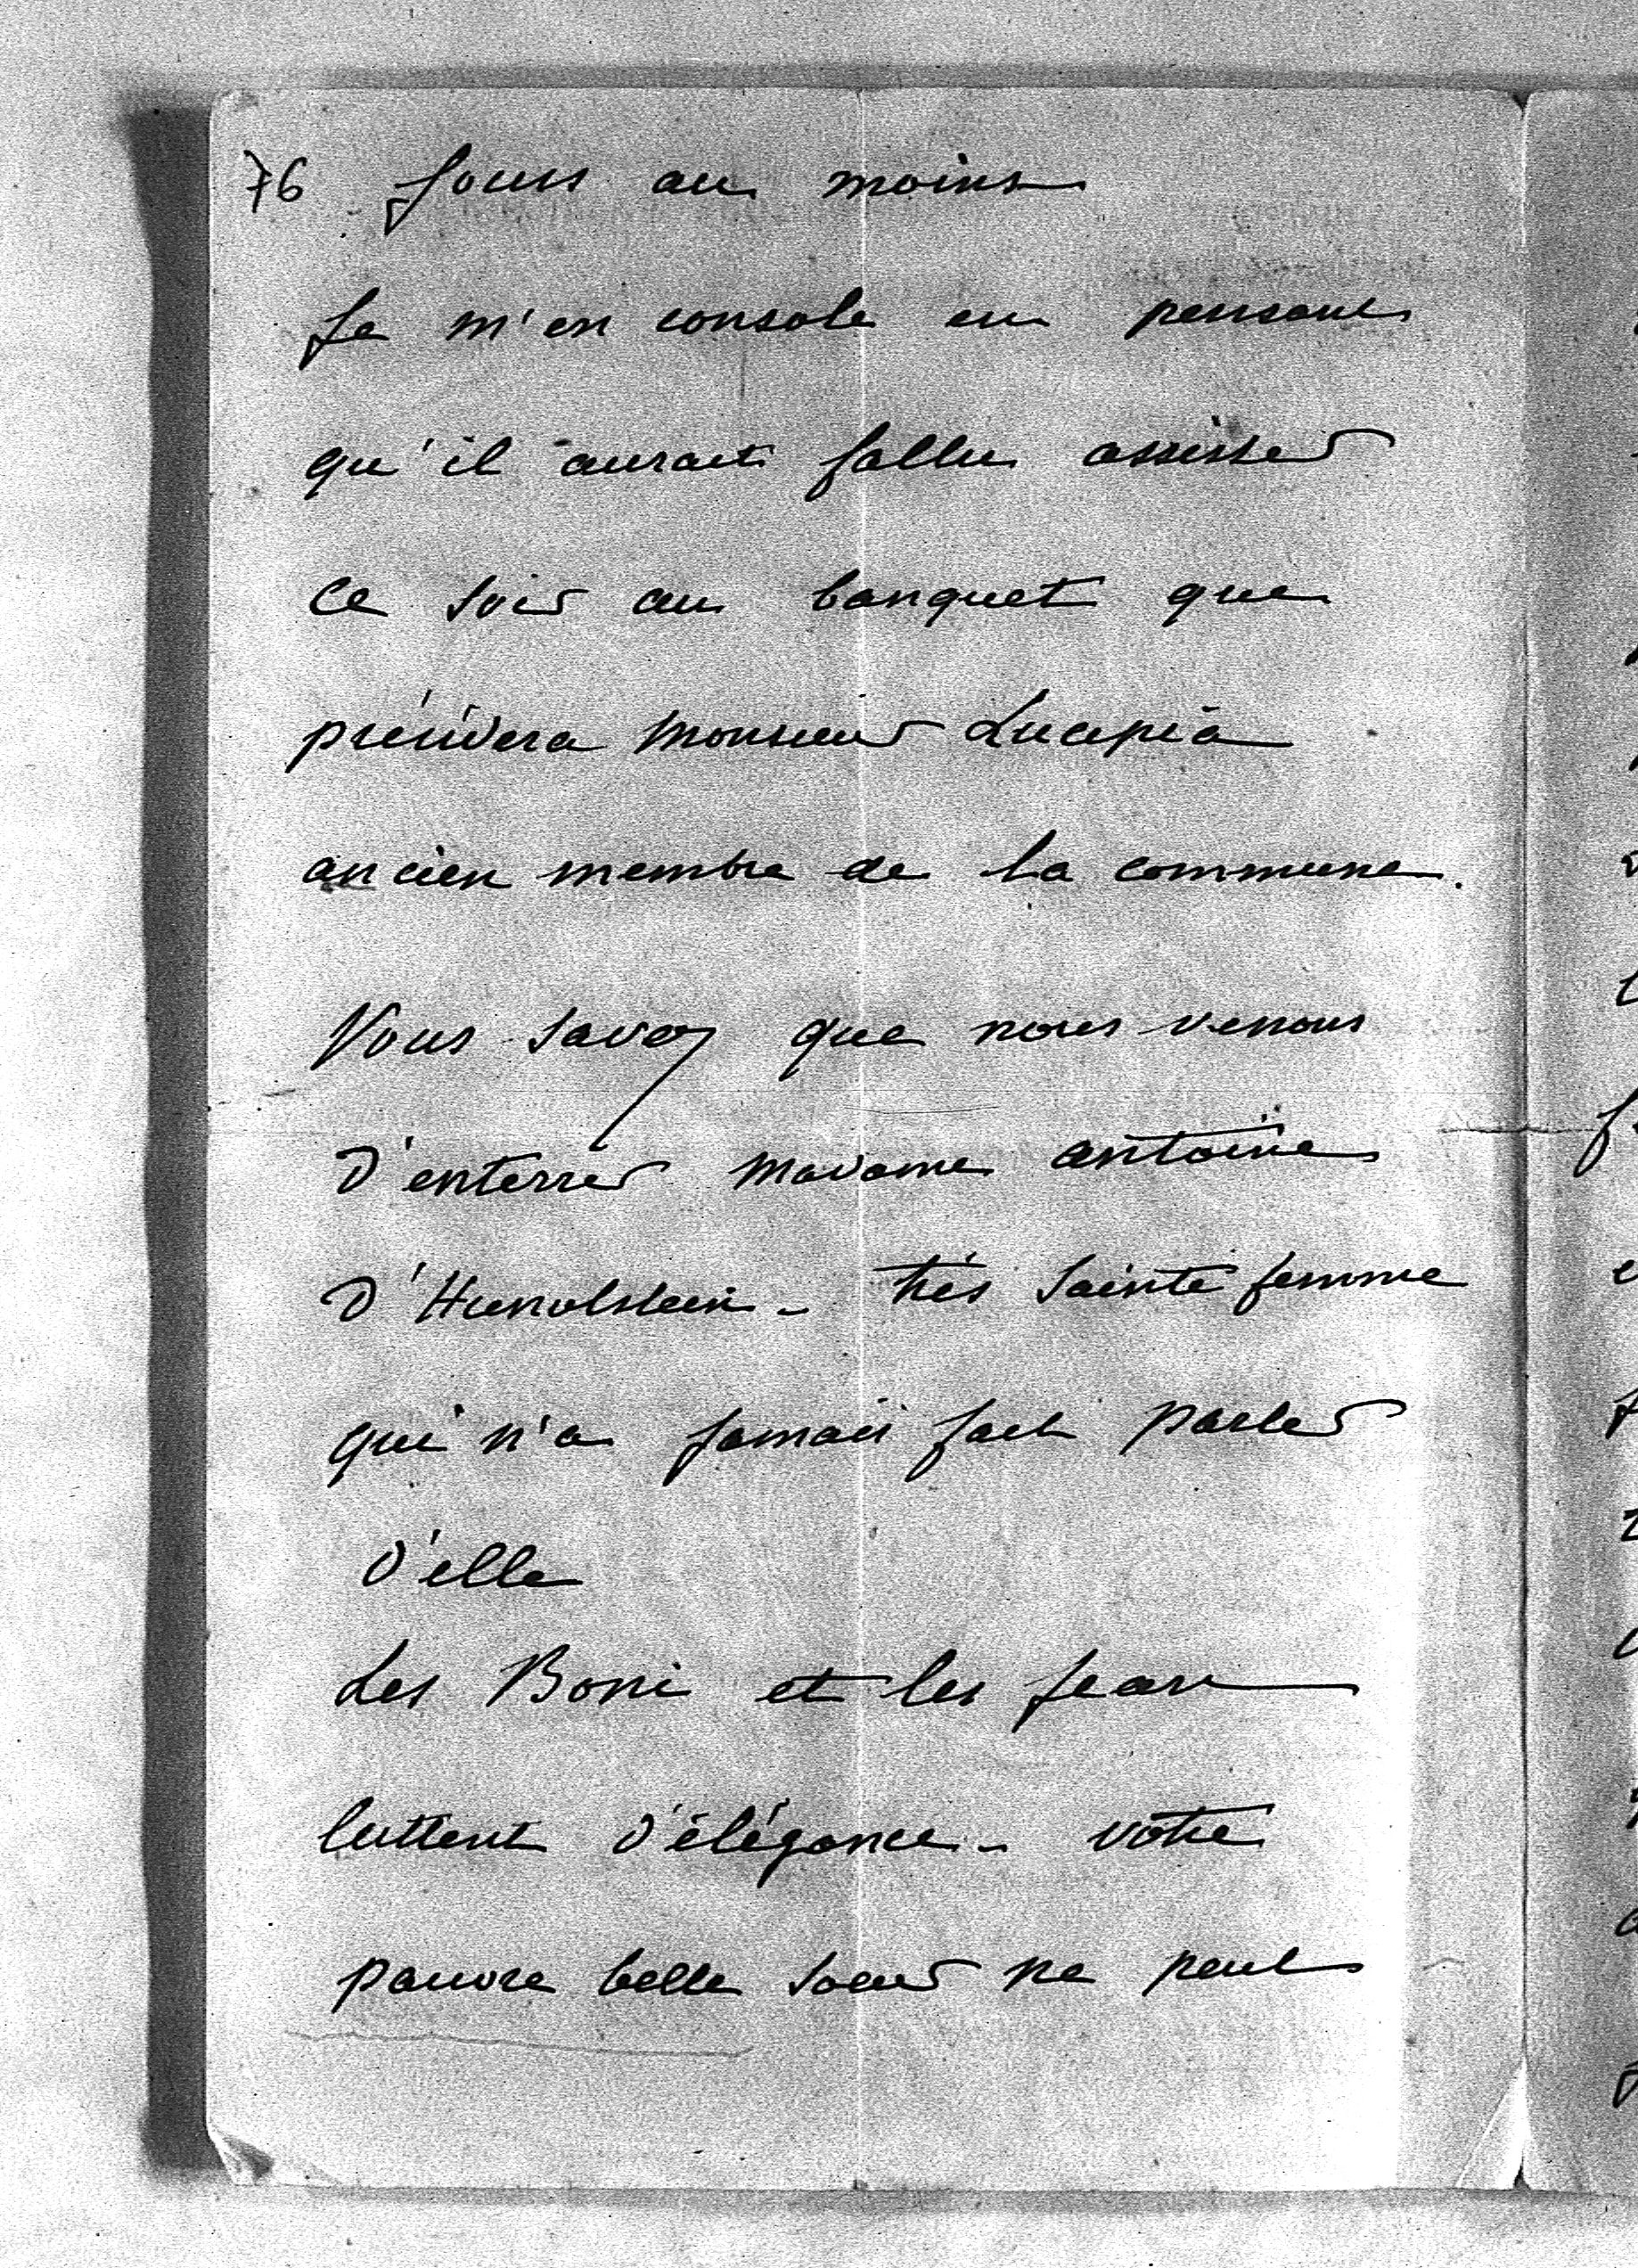 76 jours au moins
Je m'en console en pensant
qu'il aurait fallu assister
ce soir au banquet que
présidera Monsieur Lucipia
ancien membre de la commune.
Vous savez que nous venons
d'enterrer Madame Antoine
d'Hunolstein - très sainte femme
qui n'a jamais fait parler
d'elle
Les Boni et les Jean
luttent d'élégance - votre
pauvre belle soeur ne peut